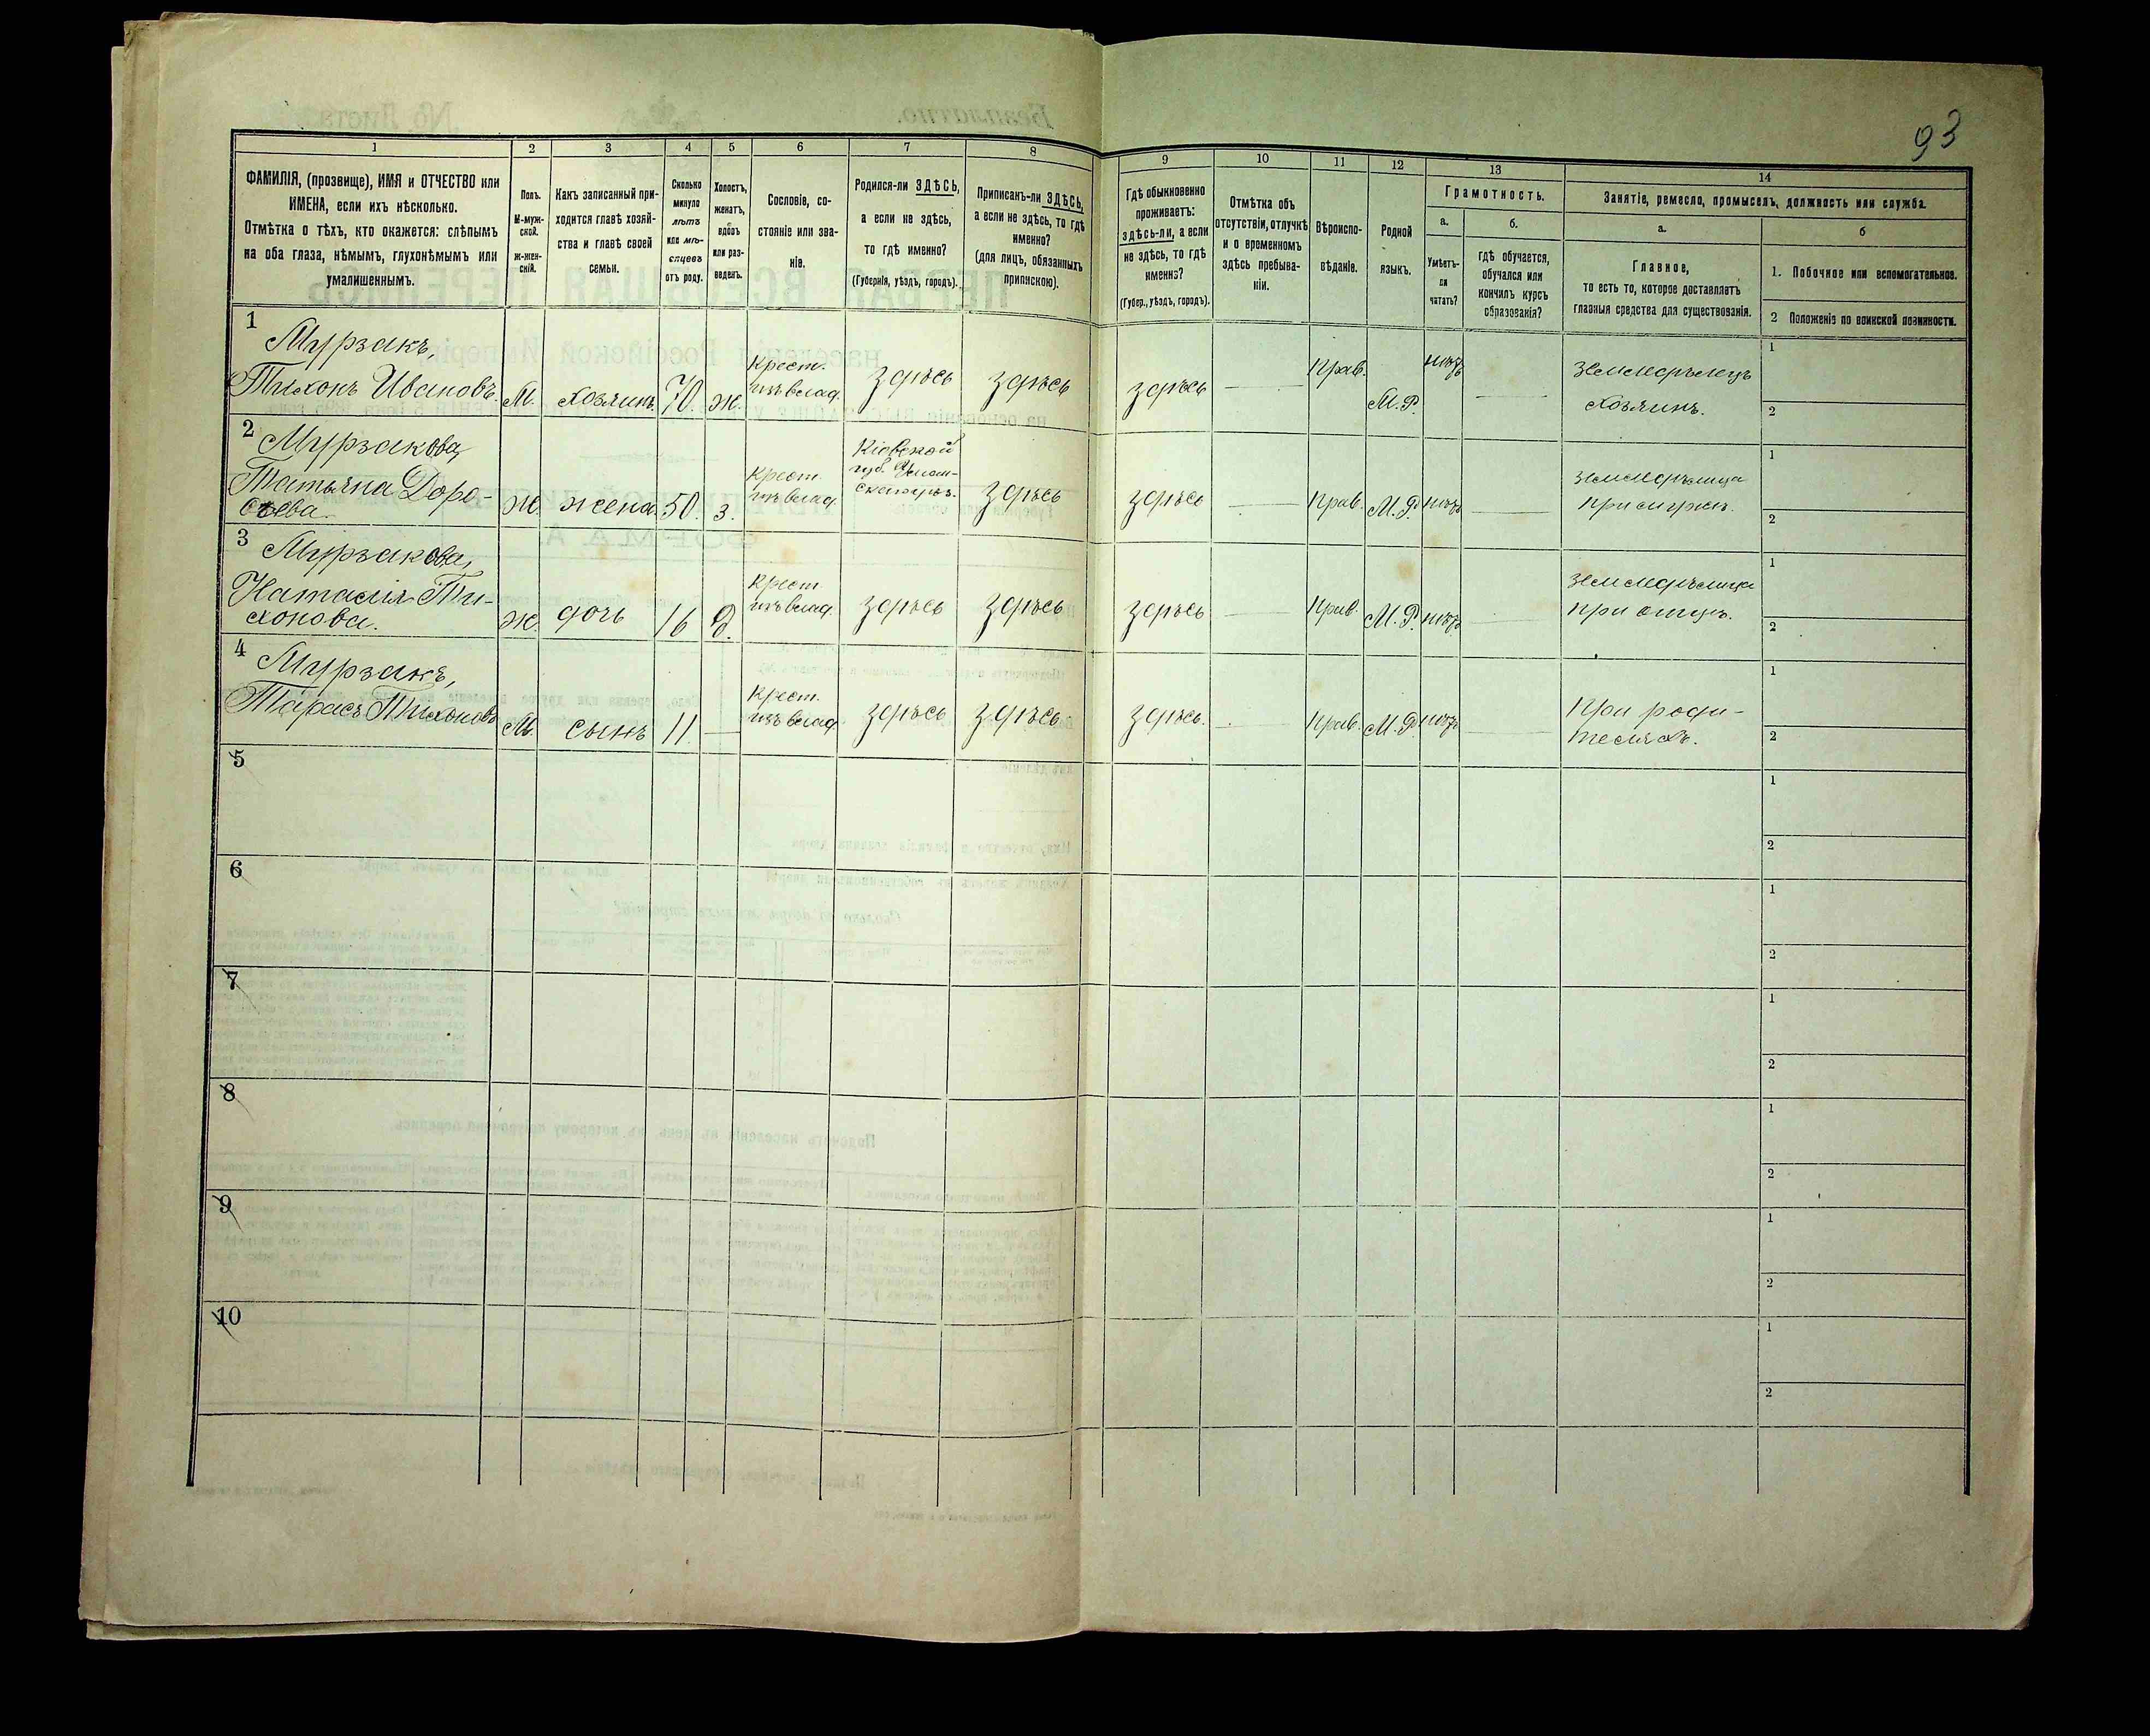 93
1 2 3 4 5 6 7 8 9 10 11 12 13 14
ФАМИЛІЯ, (прозвище), ИМЯ и ОТЧЕСТВО или
ИМЕНА, если ихъ нѣсколько.
Отмѣтка о тѣхъ, кто окажется: слѣпымъ
на оба глаза, нѣмымъ, глухонѣмымъ или
умалишеннымъ.
Полъ.
М-муж-
ской.
ж-жен-
скій.
Какъ записанный при-
ходится главѣ хозяй-
ства и главѣ своей
семьи.
Сколько
минуло
лѣтъ
или мѣ-
сяцевъ
отъ роду.
Холостъ,
женатъ,
вдовъ
или раз-
веденъ.
Сословіе, со-
стояніе или зва-
ніе.
Родился-ли ЗДѢСЬ,
а если не здѣсь,
то гдѣ именно?
(Губернія, уѣздъ, городъ).
Приписанъ-ли ЗДѢСЬ,
а если не здѣсь, то гдѣ
именно?
(для лицъ, обязанныхъ
припискою).
Гдѣ обыкновенно
проживаетъ:
здѣсь-ли, а если
не здѣсь, то гдѣ
именно?
(Губер., уѣздъ, городъ).
Отмѣтка объ
отсутствіи, отлучкѣ
и о временномъ
здѣсь пребыва-
ніи.
Вѣроиспо-
вѣданіе.
Родной
языкъ.
Грамотность.
а.
Умѣетъ-
ли
читать?
б.
гдѣ обучается,
обучался или
кончилъ курсъ
образованія?
Занятіе, ремесло, промыселъ, должность или служба.
а.
Главное,
то есть то, которое доставляетъ
главныя средства для существованія.
б
1. Побочное или вспомогательное.
2 Положеніе по воинской повинности.
1 Мурзакъ,
Тихонъ Ивановъ. М. хозяинъ. 70. ж. Крест. изъ влад. здѣсь здѣсь здѣсь Прав. М.Р. нѣтъ земледѣлецъ
хозяинъ.
1
2
2 Мурзакова,
Татьяна Доро-
феева. Ж. жена 50. з. Крест. изъ влад. Кіевской
губ. здѣсь здѣсь Прав. М.Р. нѣтъ земледѣлица
при мужѣ.
1
2
3 Мурзакова,
Наталія Ти-
хонова. Ж. дочь 16 д. Крест. изъ влад. здѣсь здѣсь здѣсь Прав. М.Р. нѣтъ земледѣлица
при отцѣ.
1
2
4 Мурзакъ,
Тарасъ Тихоновъ М. сынъ 11 Крест. изъ влад. здѣсь здѣсь здѣсь. Прав. М.Р. нѣтъ При роди-
теляхъ.
1
2
5
1
2
6
1
2
7
1
2
8
1
2
9
1
2
10
1
2